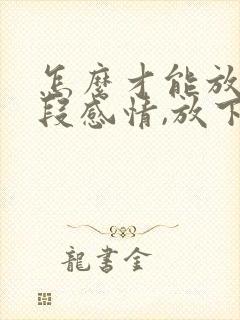 怎麼才能放
段感情,放下
龍書金